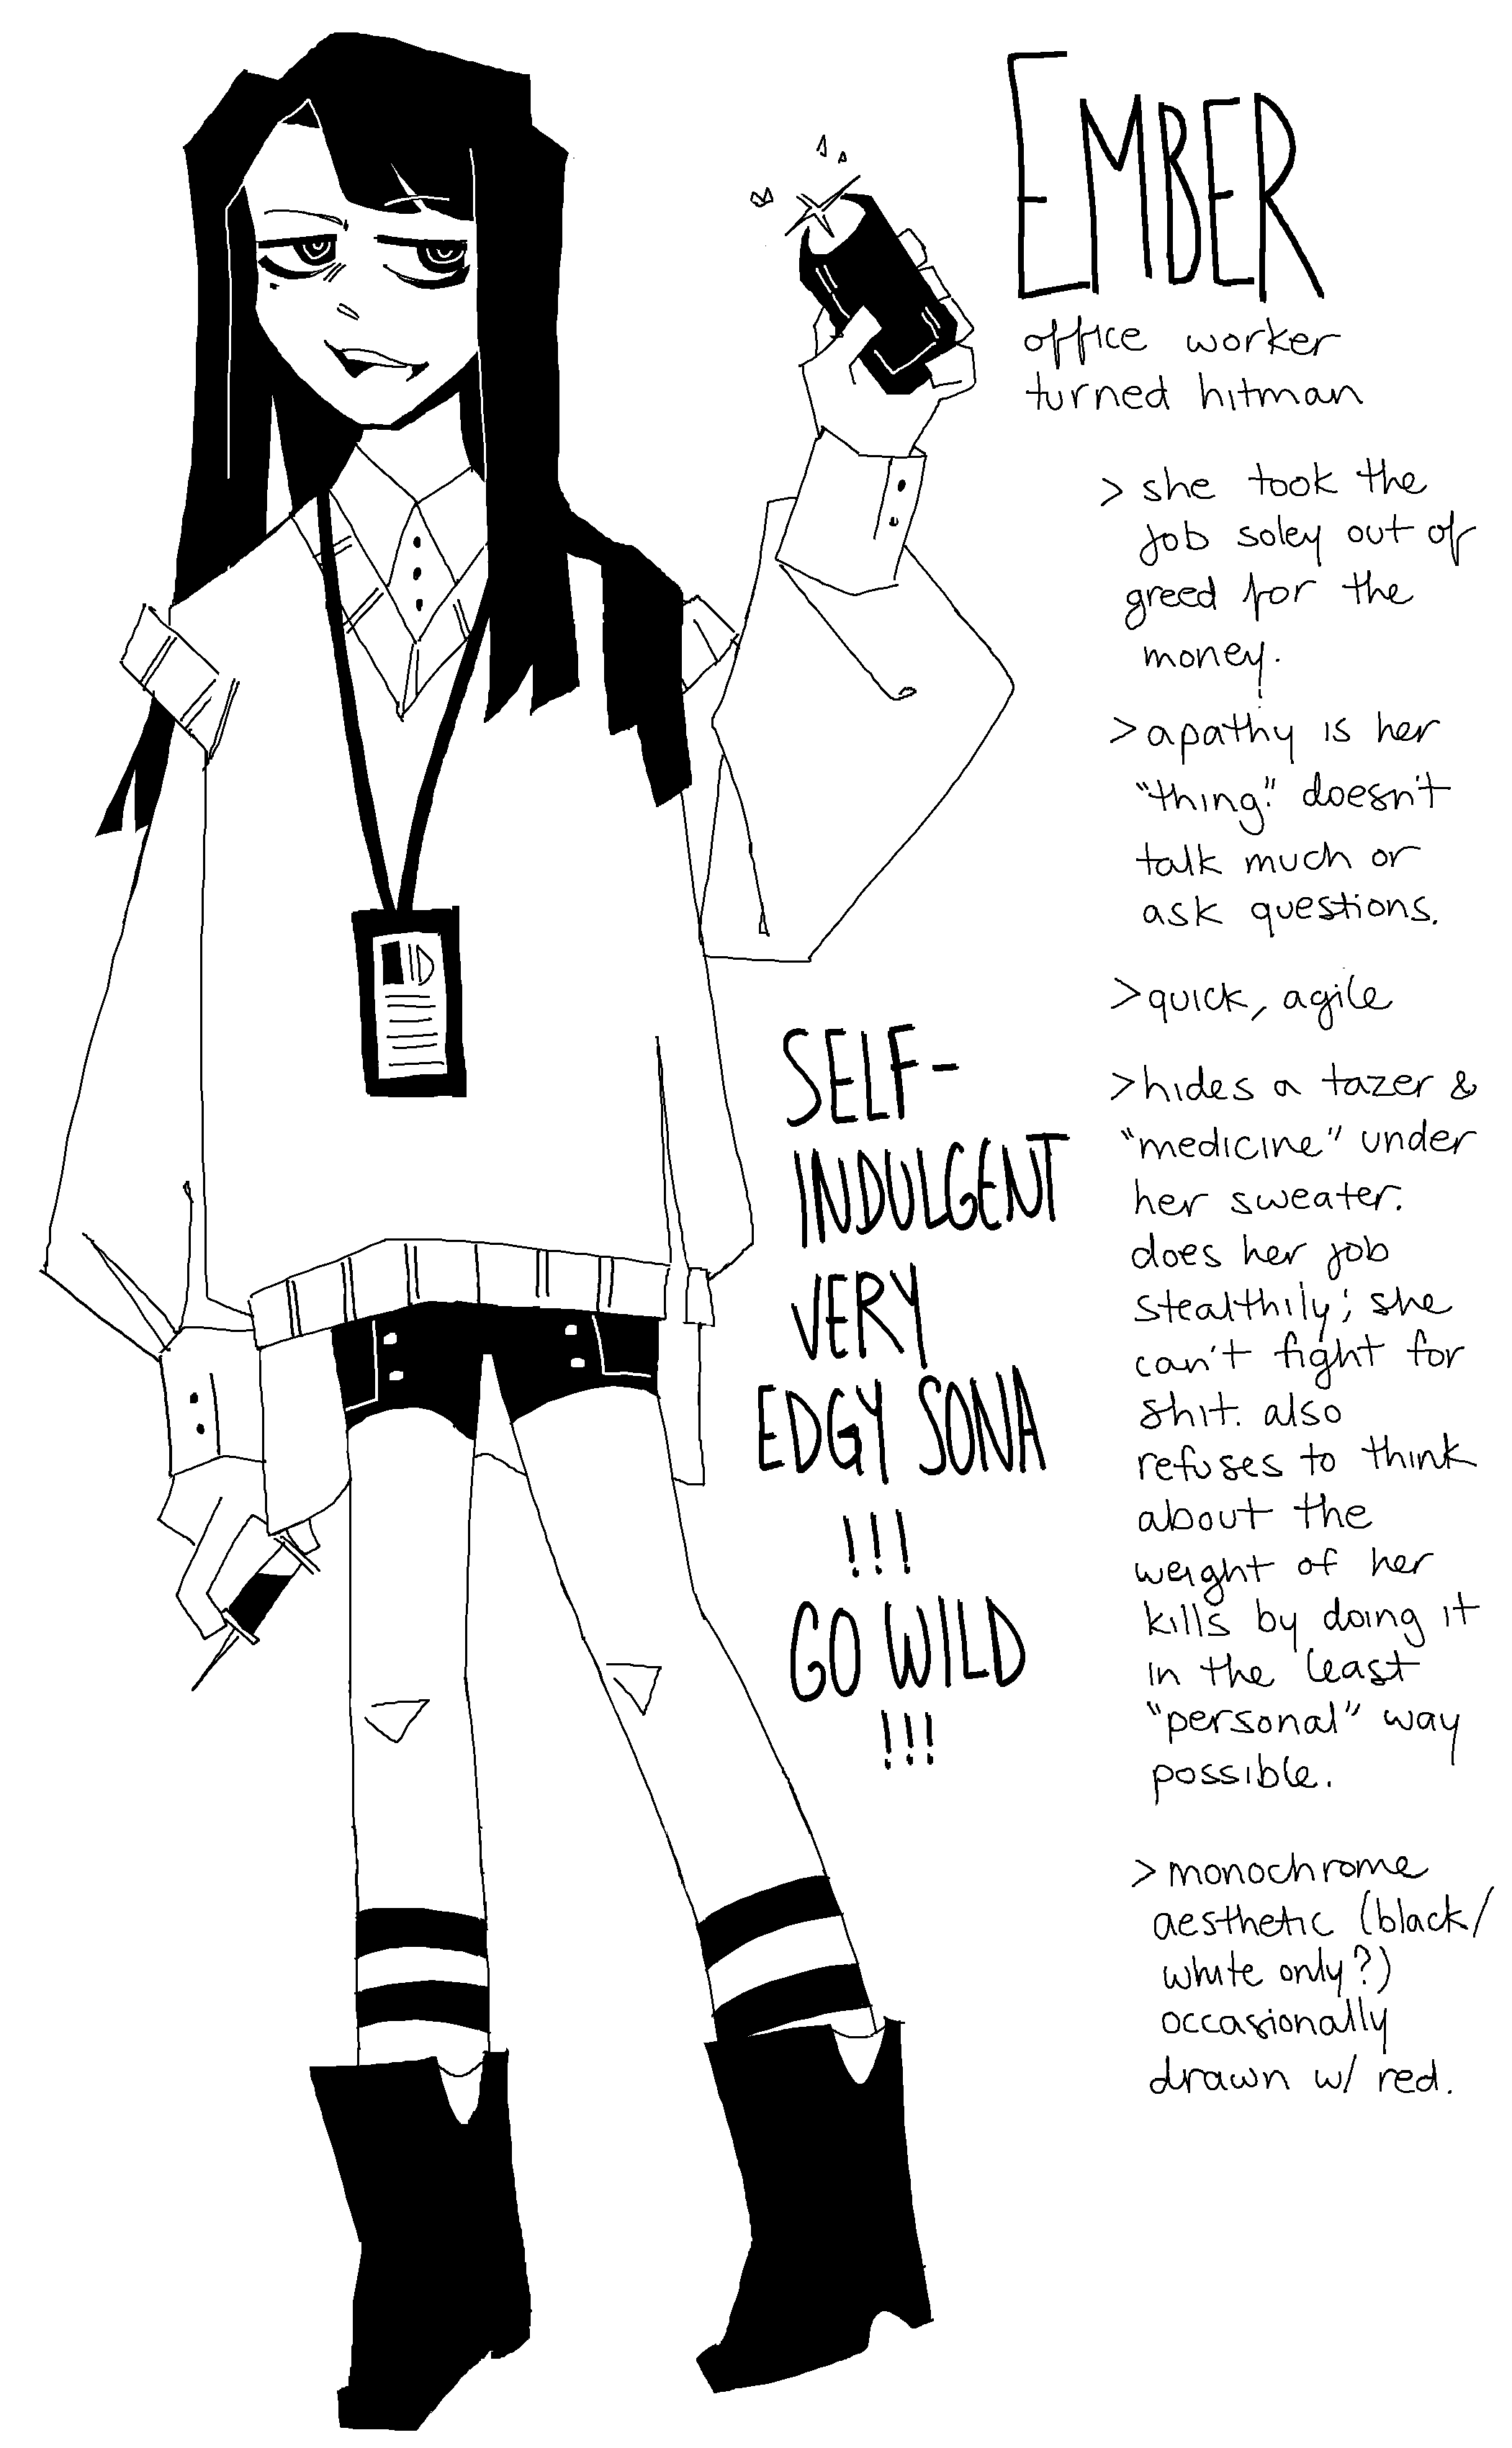 EMBER
office worker
turned hitman
> she took the
job soley out of
greed for the
money.
> apathy is her
"thing." doesn't
talk much or
ask questions.
> quick, agile
> hides a tazer &
"medicine" under
her sweater.
does her job
stealthily; she
can't fight for
shit. also
refuses to think
about the
weight of her
kills by doing it
in the least
"personal" way
possible.
> monochrome
aesthetic (black/
white only?)
occasionally
drawn w/ red.
SELF-
INDULGENT
VERY
EDGY SONA
!!!
GO WILD
!!!